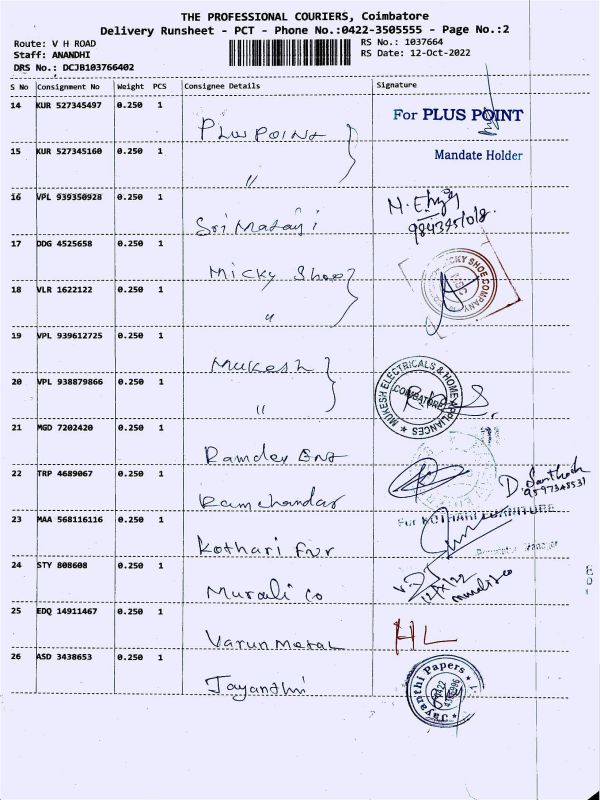 THE PROFESSIONAL COURIERS, Coimbatore
Delivery Runsheet - PCT - Phone No.:0422-3505555 - Page No.:2
Route: V H ROAD
RS No.: 1037664
Staff: ANANDHI
RS Date: 12-Oct-2022
DRS No.: DCJB103766402
S No Consignment No Weight PCS Consignee Details Signature
14 KUR 527345497 0.250 1
For PLUS POINT
Plus Point
15 KUR 527345160 0.250 1
Mandate Holder
"
16 VPL 939350928 0.250 1
Sri Mataji
17 DDG 4525658 0.250 1
Micky Shoe
MICKY SHOE COMPANY
18 VLR 1622122 0.250 1
"
19 VPL 939612725 0.250 1
Mukesh
MUKESH ELECTRICALS & HOME APPLIANCES
COIMBATORE
20 VPL 938879866 0.250 1
"
21 MGD 7202420 0.250 1
Ramdev Ent
22 TRP 4689067 0.250 1
D. Santhosh
9597348531
Ramchandar
23 MAA 568116116 0.250 1
For KOTHARI FURNITURE
Kothari Fur
24 STY 808608 0.250 1
Murali Co
V.
12/X/22
Murali co
25 EDQ 14911467 0.250 1
Varun Metal
HL
26 ASD 3438653 0.250 1
Jayanthi
Jayanthi Papers